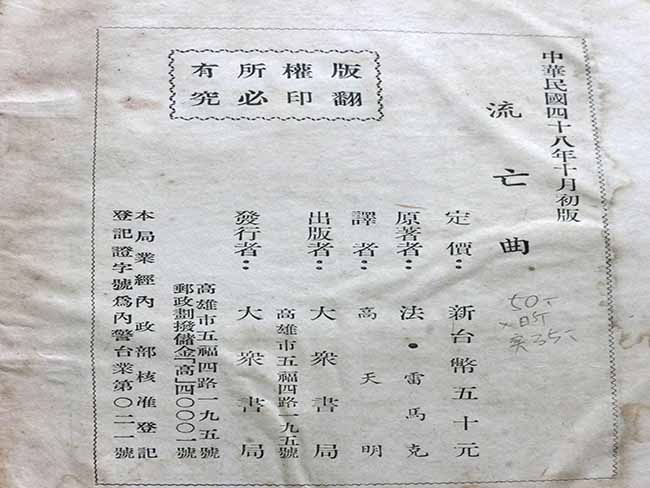 中華民國四十八年十月初版
流亡曲
定價：新台幣五十元
原著者：法・雷馬克
譯者：高天明
出版者：大衆書局
高雄市五福四路一九五號
發行者：大衆書局
高雄市五福四路一九五號
郵政劃撥儲金「高」四〇〇〇一號
本局業經內政部核准登記
登記證字號爲內警台業第〇二一號
版權所有
翻印必究
50.-